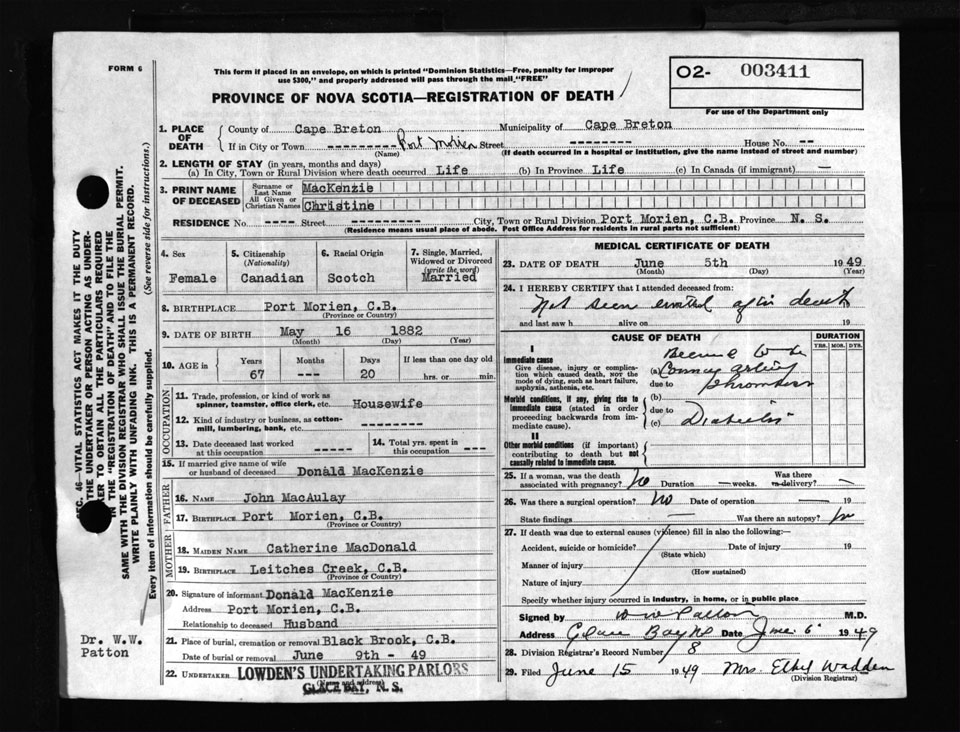 FORM 6
This form if placed in an envelope, on which is printed "Dominion Statistics—Free, penalty for improper
use $300," and properly addressed will pass through the mail "FREE"
PROVINCE OF NOVA SCOTIA—REGISTRATION OF DEATH
O2- 003411
For use of the Department only
SEC. 46—VITAL STATISTICS ACT MAKES IT THE DUTY
OF THE UNDERTAKER OR PERSON ACTING AS UNDER-
TAKER TO OBTAIN ALL THE PARTICULARS REQUIRED
IN THE "REGISTRATION OF DEATH" AND TO FILE THE
SAME WITH THE DIVISION REGISTRAR WHO SHALL ISSUE THE BURIAL PERMIT.
WRITE PLAINLY WITH UNFADING INK. THIS IS A PERMANENT RECORD.
Every item of information should be carefully supplied. (See reverse side for instructions.)
1. PLACE OF DEATH County of Cape Breton Municipality of Cape Breton
If in City or Town ---------- Port Morien Street --------- House No. --
(Name) (If death occurred in a hospital or institution, give the name instead of street and number)
2. LENGTH OF STAY (in years, months and days)
(a) In City, Town or Rural Division where death occurred Life (b) In Province Life (c) In Canada (if immigrant) —
3. PRINT NAME OF DECEASED Surname or Last Name MacKenzie
All Given or Christian Names Christine
RESIDENCE No. ---- Street ---------- City, Town or Rural Division Port Morien, C.B. Province N. S.
(Residence means usual place of abode. Post Office Address for residents in rural parts not sufficient)
4. Sex 5. Citizenship (Nationality) 6. Racial Origin 7. Single, Married, Widowed or Divorced (write the word)
Female Canadian Scotch Married
8. BIRTHPLACE Port Morien, C.B.
(Province or Country)
9. DATE OF BIRTH May 16 1882
(Month) (Day) (Year)
10. AGE in Years Months Days If less than one day old
67 --- 20 hrs. or min.
OCCUPATION
11. Trade, profession, or kind of work as
spinner, teamster, office clerk, etc. Housewife
12. Kind of industry or business, as cotton-
mill, lumbering, bank, etc. ----------
13. Date deceased last worked
at this occupation -----
14. Total yrs. spent in
this occupation ---
15. If married give name of wife
or husband of deceased Donald MacKenzie
FATHER
16. NAME John MacAulay
17. BIRTHPLACE Port Morien, C.B.
(Province or Country)
MOTHER
18. MAIDEN NAME Catherine MacDonald
19. BIRTHPLACE Leitches Creek, C.B.
(Province or Country)
20. Signature of informant Donald MacKenzie
Address Port Morien, C.B.
Relationship to deceased Husband
21. Place of burial, cremation or removal Black Brook, C.B.
Date of burial or removal June 9th - 49
22. UNDERTAKER LOWDEN'S UNDERTAKING PARLORS
(Name and address)
GLACE BAY, N. S.
Dr. W.W.
Patton
MEDICAL CERTIFICATE OF DEATH
23. DATE OF DEATH June 5th 1949
(Month) (Day) (Year)
24. I HEREBY CERTIFY that I attended deceased from:
Not seen until after death 19
and last saw h alive on 19
CAUSE OF DEATH DURATION
YRS. MOS. DYS.
I
Immediate cause
Give disease, injury or complica-
tion which caused death, NOT the
mode of dying, such as heart failure,
asphyxia, asthenia, etc.
(a) Coronary artery
due to Thrombosis
Morbid conditions, if any, giving rise to
immediate cause (stated in order
proceeding backwards from im-
mediate cause).
(b)
due to
(c) Diabetes
II
Other morbid conditions (if important)
contributing to death but not
causally related to immediate cause.
25. If a woman, was the death
associated with pregnancy? No Duration — weeks. Was there
delivery? —
26. Was there a surgical operation? No Date of operation — 19
State findings — Was there an autopsy? No
27. If death was due to external causes (violence) fill in also the following:—
Accident, suicide or homicide? Date of injury 19
(State which)
Manner of injury
(How sustained)
Nature of injury
Specify whether injury occurred in industry, in home, or in public place
Signed by W W Patton M.D.
Address Glace Bay NS Date June 6 1949
28. Division Registrar's Record Number 8
29. Filed June 15 1949 Mrs. Ethel Wadden
(Division Registrar)